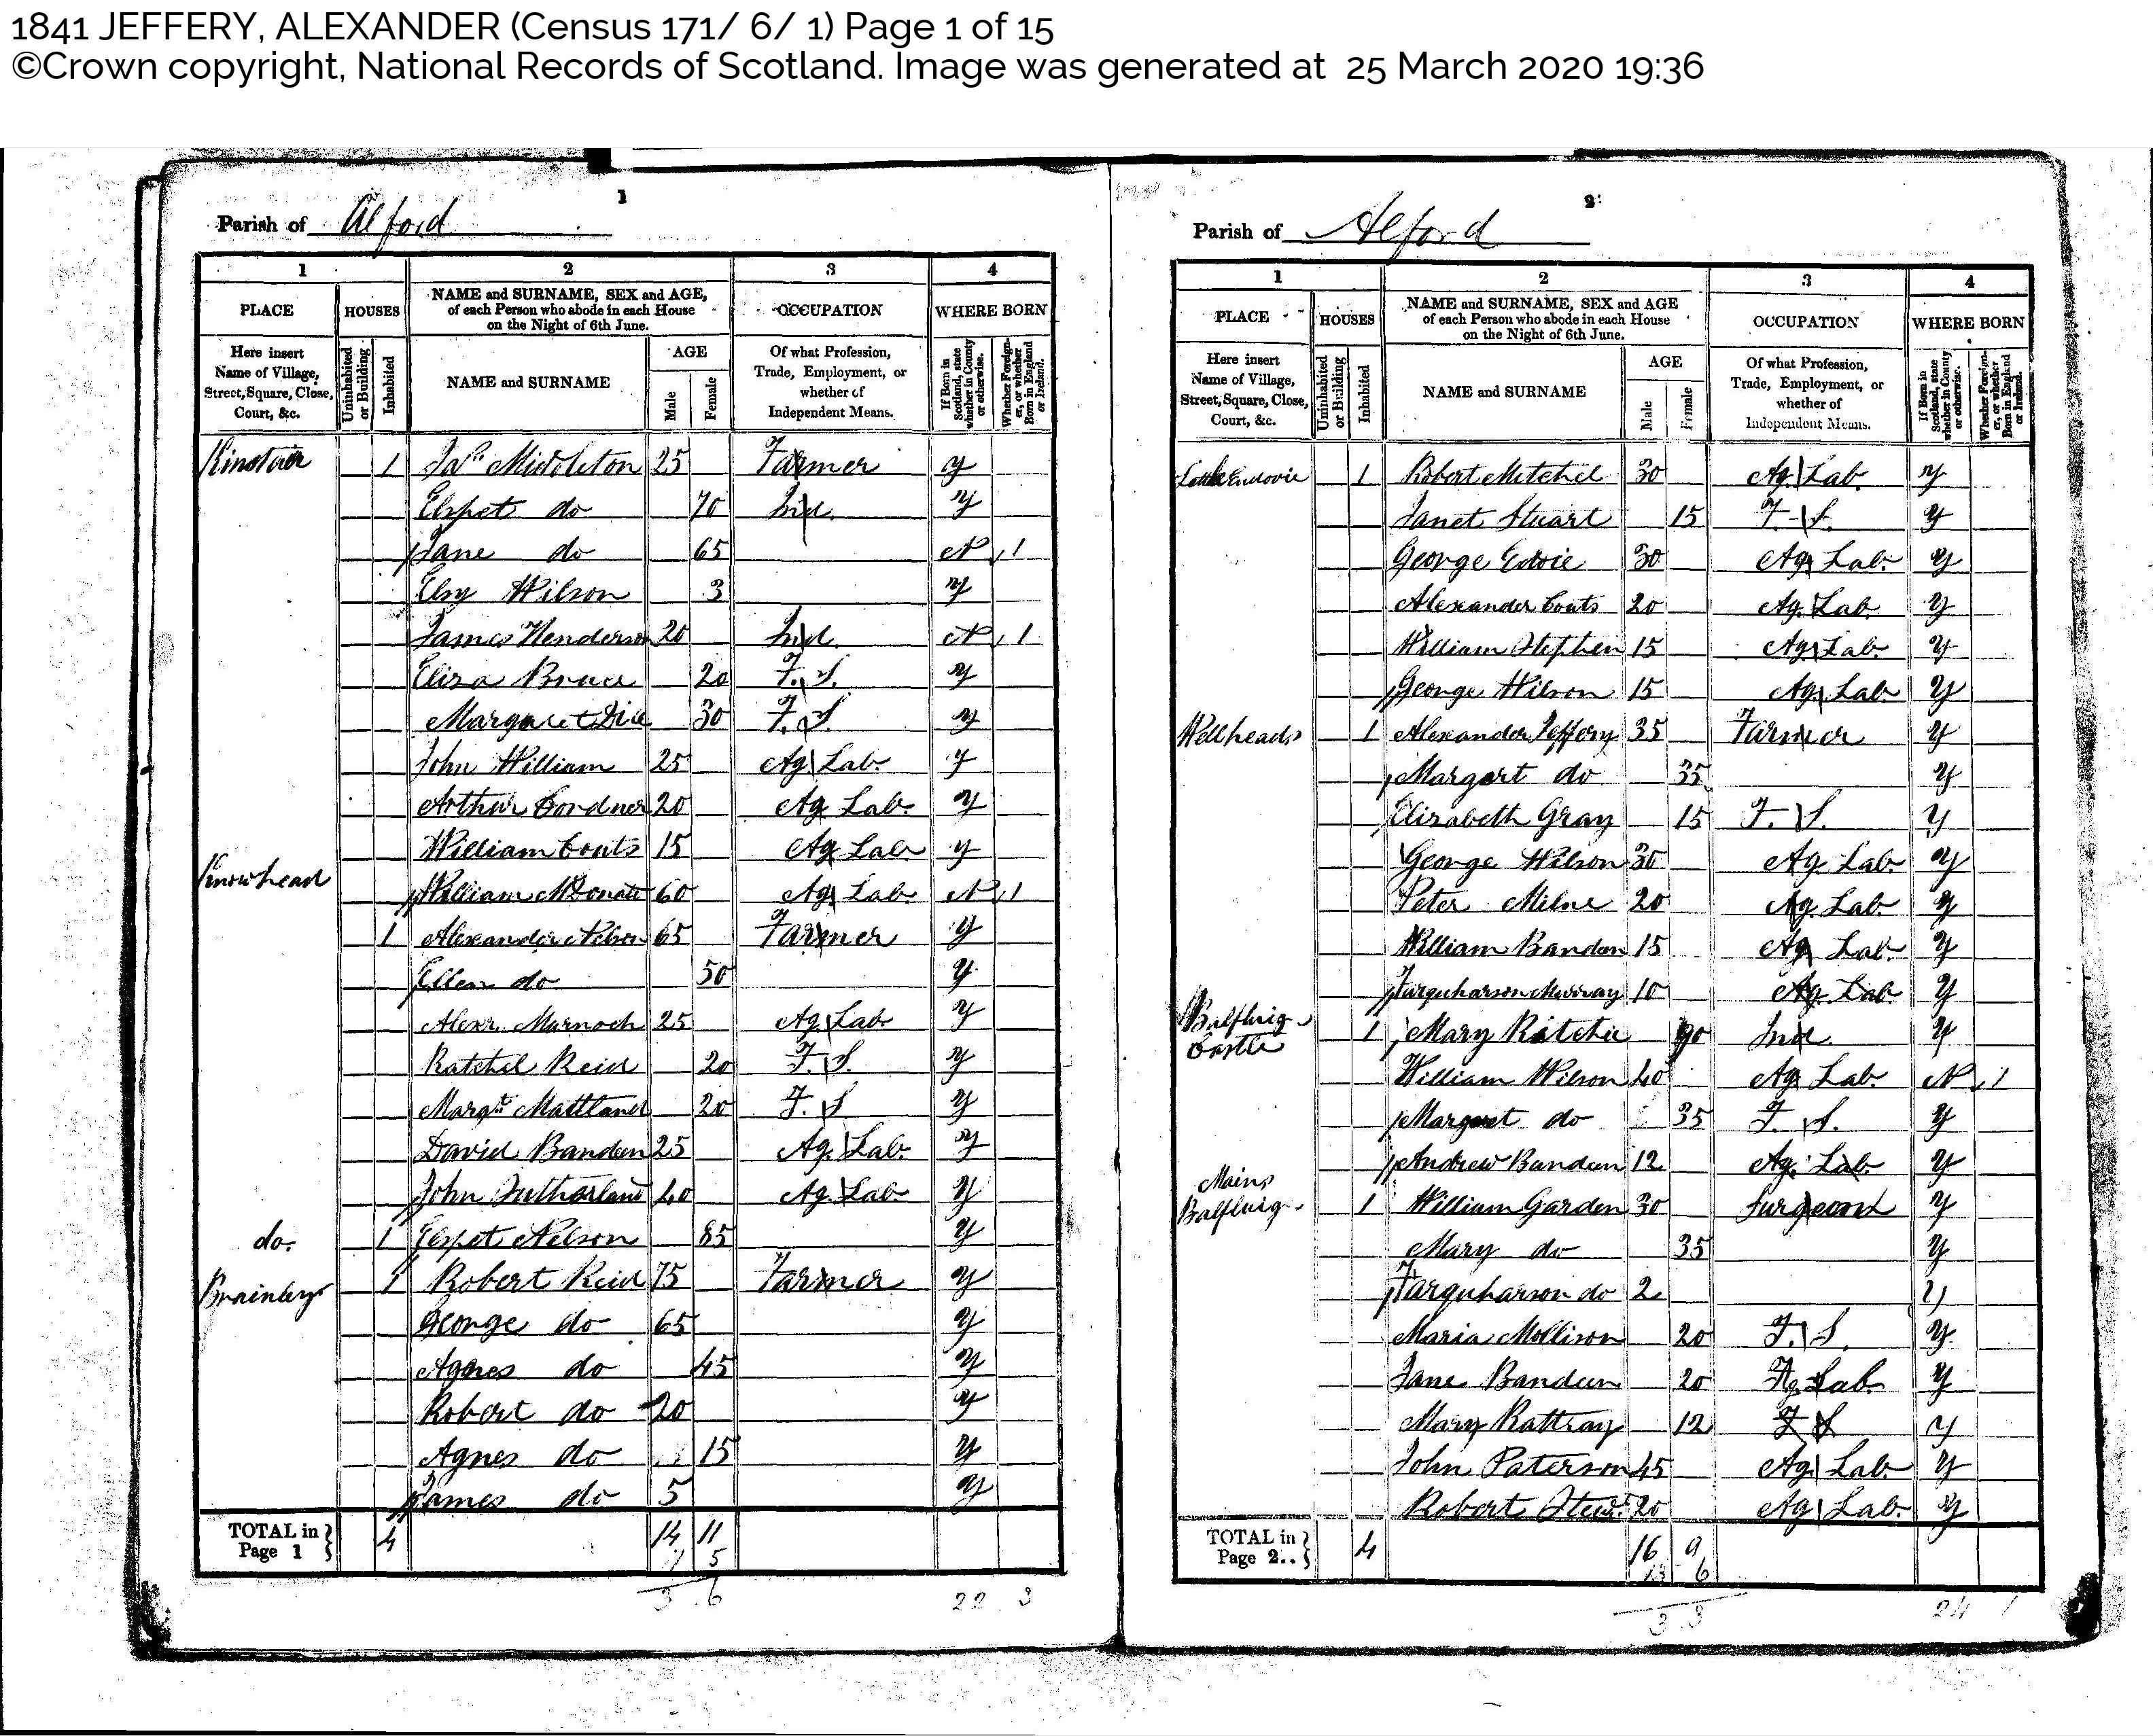 1841 JEFFERY, ALEXANDER (Census 171/ 6/ 1) Page 1 of 15
©Crown copyright, National Records of Scotland. Image was generated at 25 March 2020 19:36
1
Parish of Alford
1 2 3 4
PLACE HOUSES NAME and SURNAME, SEX and AGE, of each Person who abode in each House on the Night of 6th June. OCCUPATION WHERE BORN
Here insert Name of Village, Street, Square, Close, Court, &c. Uninhabited or Building Inhabited NAME and SURNAME AGE Male Female Of what Profession, Trade, Employment, or whether of Independent Means. If Born in Scotland, state whether in County or otherwise. Whether Foreigner, or whether Born in England or Ireland.
1 Jas Middleton 25 Farmer y
Elspet do 70 Ind. y
Jane do 65 N 1
Elsy Wilson 3 y
James Henderson 20 Ind. N 1
Eliza Bruce 20 F. S. y
Margaret Dice 30 F. S. y
John William 25 Ag Lab. y
Arthur Gordner 20 Ag Lab. y
William Couts 15 Ag Lab y
Knowhead
William McDonald 60 Ag Lab N 1
1 Alexander Nelson 65 Farmer y
Ellen do 50 y
Alexr. Murnoch 25 Ag. Lab. y
Ratchel Reid 20 F. S. y
Margt Mattland 20 F. S y
David Banden 25 Ag. Lab. y
John Sutherland 40 Ag. Lab y
do. 1 Elspet Nelson 85 y
1 Robert Reid 75 Farmer y
George do 65 y
Agnes do 45 y
Robert do 20 y
Agnes do 15 y
James do 5 y
TOTAL in Page 1 4 14 11
5
3 6 22 3
2
Parish of Alford
1 2 3 4
PLACE HOUSES NAME and SURNAME, SEX and AGE of each Person who abode in each House on the Night of 6th June. OCCUPATION WHERE BORN
Here insert Name of Village, Street, Square, Close, Court, &c. Uninhabited or Building Inhabited NAME and SURNAME AGE Male Female Of what Profession, Trade, Employment, or whether of Independent Means. If Born in Scotland, state whether in County or otherwise. Whether Foreigner, or whether Born in England or Ireland.
Little Endovie 1 Robert Mitchel 30 Ag. Lab. y
Janet Stuart 15 F. S. y
George Edwie 30 Ag Lab. y
Alexander Couts 20 Ag. Lab. y
William Stephen 15 Ag Lab. y
George Wilson 15 Ag. Lab y
Wellheads 1 Alexander Jeffery 35 Farmer y
Margart do 35 y
Elizabeth Gray 15 F. S. y
George Wilson 30 Ag Lab. y
Peter Milne 20 Ag. Lab. y
William Banden 15 Ag Lab. y
Farquharson Murray 10 Ag. Lab y
Balfluig Castle 1 Mary Ritchie 90 Ind. y
William Wilson 40 Ag Lab. N 1
Margaret do 35 F. S. y
Andrew Banden 12 Ag. Lab. y
Mains Balfluig 1 William Garden 30 Surgeon y
Mary do 35 y
Farquharson do 2 y
Maria Mollison 20 F. S. y
Jane Banden 20 Ag Lab. y
Mary Rattray 12 F S y
John Paterson 45 Ag Lab. y
Robert Stewt. 20 Ag Lab. y
TOTAL in Page 2.. 4 16 9
13 6
3 3 24 1